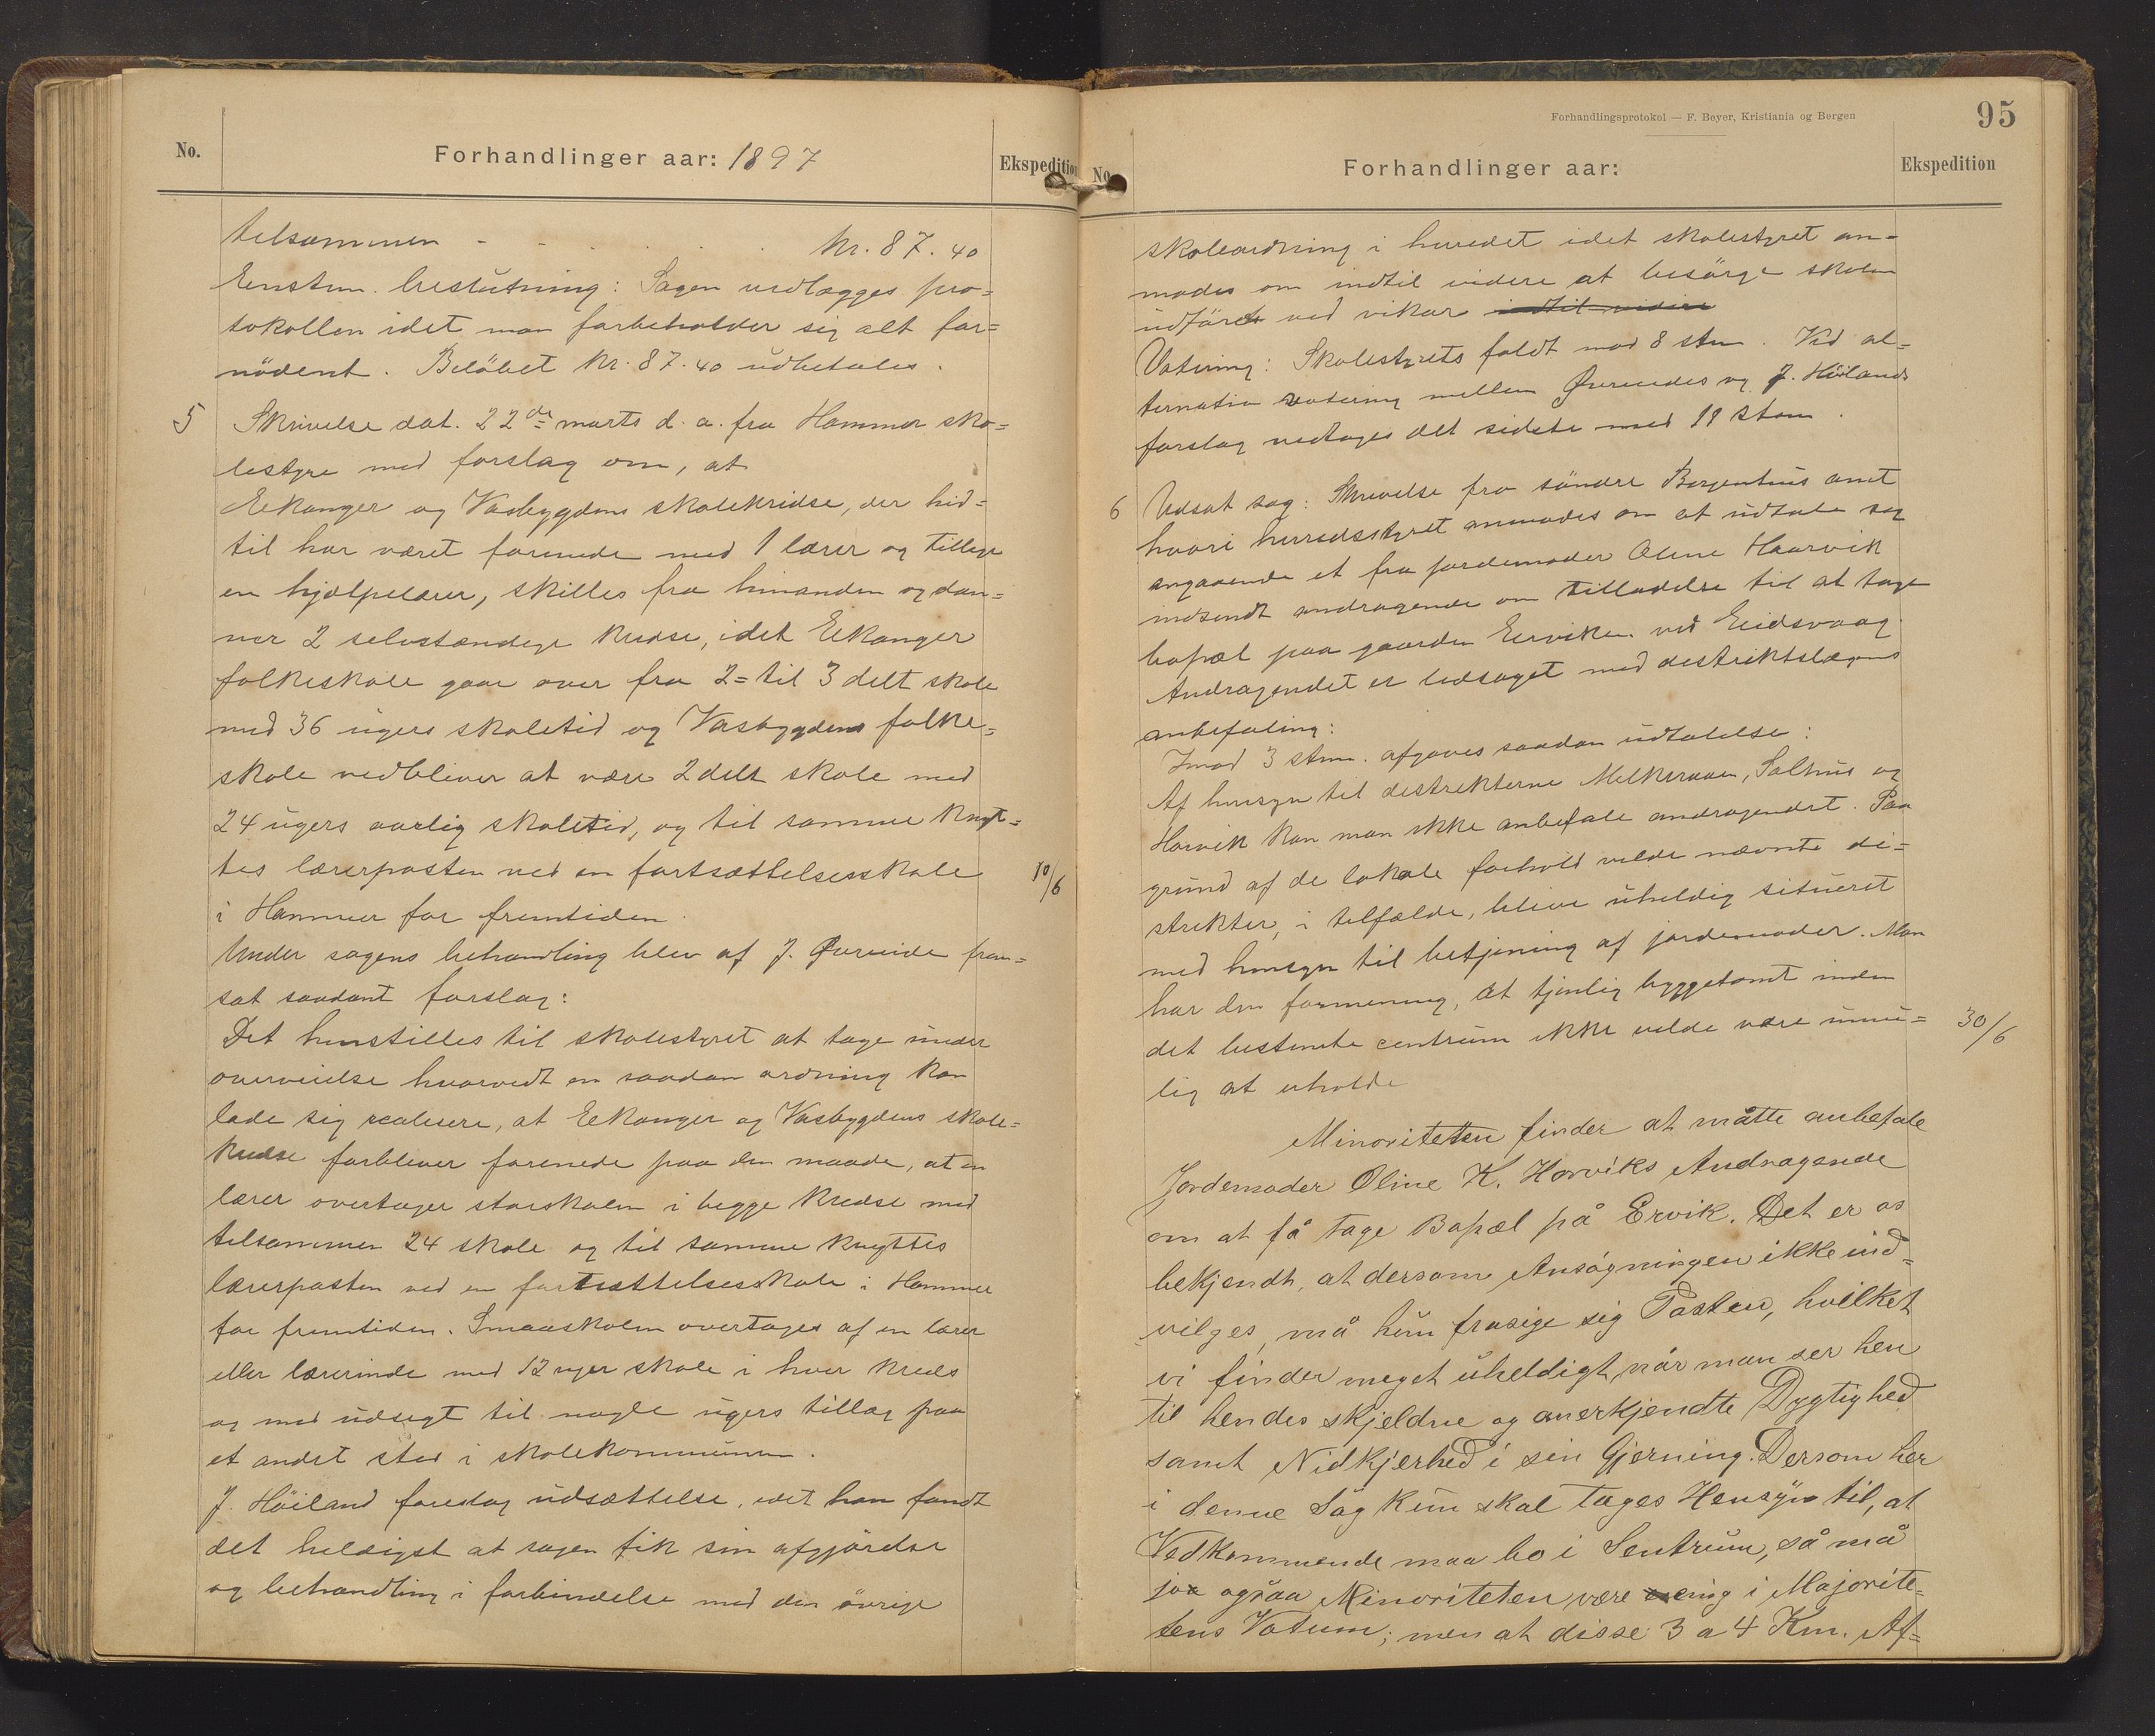 No.
Forhandlinger aar: 1897
Ekspedition
telsammen - - . . . . kr. 87.40
Enstem. beslutning: Sagen vedlægges pro=
tokollen idet man forbeholder sig alt for=
nödent. Belöbet kr. 87.40 udbetales.
5 Skrivelse dat. 22de marts d. a. fra Hammer sko=
lestyre med forslag om, at
Eekanger og Vasbygdens skolekridse, der hid=
til har været forenede med 1 lærer og tillige
en hjælpelærer, skilles fra hinanden og dan=
ner 2 selvstændige kredse, idet Eekanger
folkeskole gaar over fra 2= til 3 delt skole
med 36 ugers skoletid og Vasbygdens folke=
skole vedbliver at være 2 delt skole med
24 ugers aarlig skoletid, og til samme knyt=
tes lærerposten ved en fortsættelsesskole
10/6
i Hammer for fremtiden.
Under sagens behandling blev af J. Øvreeide frem=
sat saadant forslag:
Det henstilles til skolestyret at tage under
overveielse hvorvidt en saadan ordning kan
lade sig realisere, at Eekanger og Vasbygdens skole=
kredse forbliver forenede paa den maade, at en
lærer overtager storskolen i begge kredse med
telsammen 24 skole og til samme knyttes
lærerposten ved en fortsættelsesskole i Hammer
for fremtiden. Smaaskolen overtages af en lærer
eller lærerinde med 12 uger skole i hver kreds
og med udsigt til nogle ugers tillæg paa
et andet sted i skolekommunen.
J. Höiland foreslog udsættelse, idet han fandt
det heldigst at sagen fik sin afgjörelse
og behandling i forbindelse med den övrige
Forhandlingsprotokol — F. Beyer, Kristiania og Bergen
95
No.
Forhandlinger aar:
Ekspedition
skoleordning i herredet idet skolestyret an=
modes om indtil videre at besörge skolen
udfört ved vikar indtil videre
Votering: Skolestyrets faldt mod 8 stem. Ved al=
ternativ votering mellem Øvreeides og J. Höilands
forslag vedtoges det sidste med 11 stem.
6 Udsat sag: Skrivelse fra söndre Bergenhus amt
hvori herredsstyret anmodes om at udtale sig
angaaende et fra jordemoder Oline Haarvik
indsendt andragende om tilladelse til at tage
bopæl paa gaarden Eerviken ved Eidsvaag.
Andragendet er ledsaget med destriktslægens
anbefaling:
Imod 3 stem. afgaves saadan udtalelse:
Af hensyn til destrikterne Melkeraaen, Salhus og
Horvik kan man ikke anbefale andragendet. Paa
grund af de lokale forhold vilde nævnte di=
strikter, i tilfælde, blive uheldig situeret
med hensyn til betjening af jordemoder. Man
har den formening, at tjenlig byggetomt inden
det bestemte centrum ikke vilde være umu=
30/6
lig at erholde
Minoriteten finder at måtte anbefale
Jordemoder Oline K. Horviks Andragende
om at få tage Bopæl på Ervik. Det er os
bekjendt, at dersom Ansøgningen ikke ind=
vilges, må hun frasige sig Posten, hvilket
vi finder meget uheldigt, når man ser hen
til hendes skjeldne og anerkjendte Dygtighed
samt Nidkjerhed i sin Gjerning. Dersom her
i denne Sag kun skal tages Hensyn til, at
Vedkommende maa bo i Sentrum, så må
jo ogsaa Minoriteten være enig i Majorite=
tens Votum; men at disse 3 a 4 Km. Af=